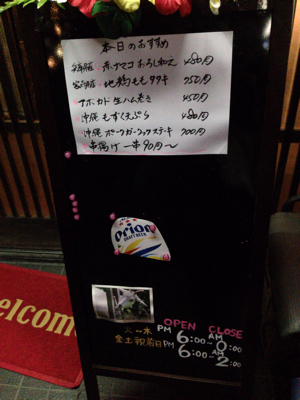 本日のおすすめ
赤ナマコおろしねえ 480円
地鶏ももタタキ 750円
アボカド生ハム巻き 450円
沖縄もずく天ぷら 480円
沖縄ポークガーリックステキ 700円
串揚げ一串90円〜
Orion
DRAFT BEER
OPEN CLOSE
火〜木 PM 6:00〜AM 0:00
金土祝前日 PM 6:00〜AM 2:00
elcom